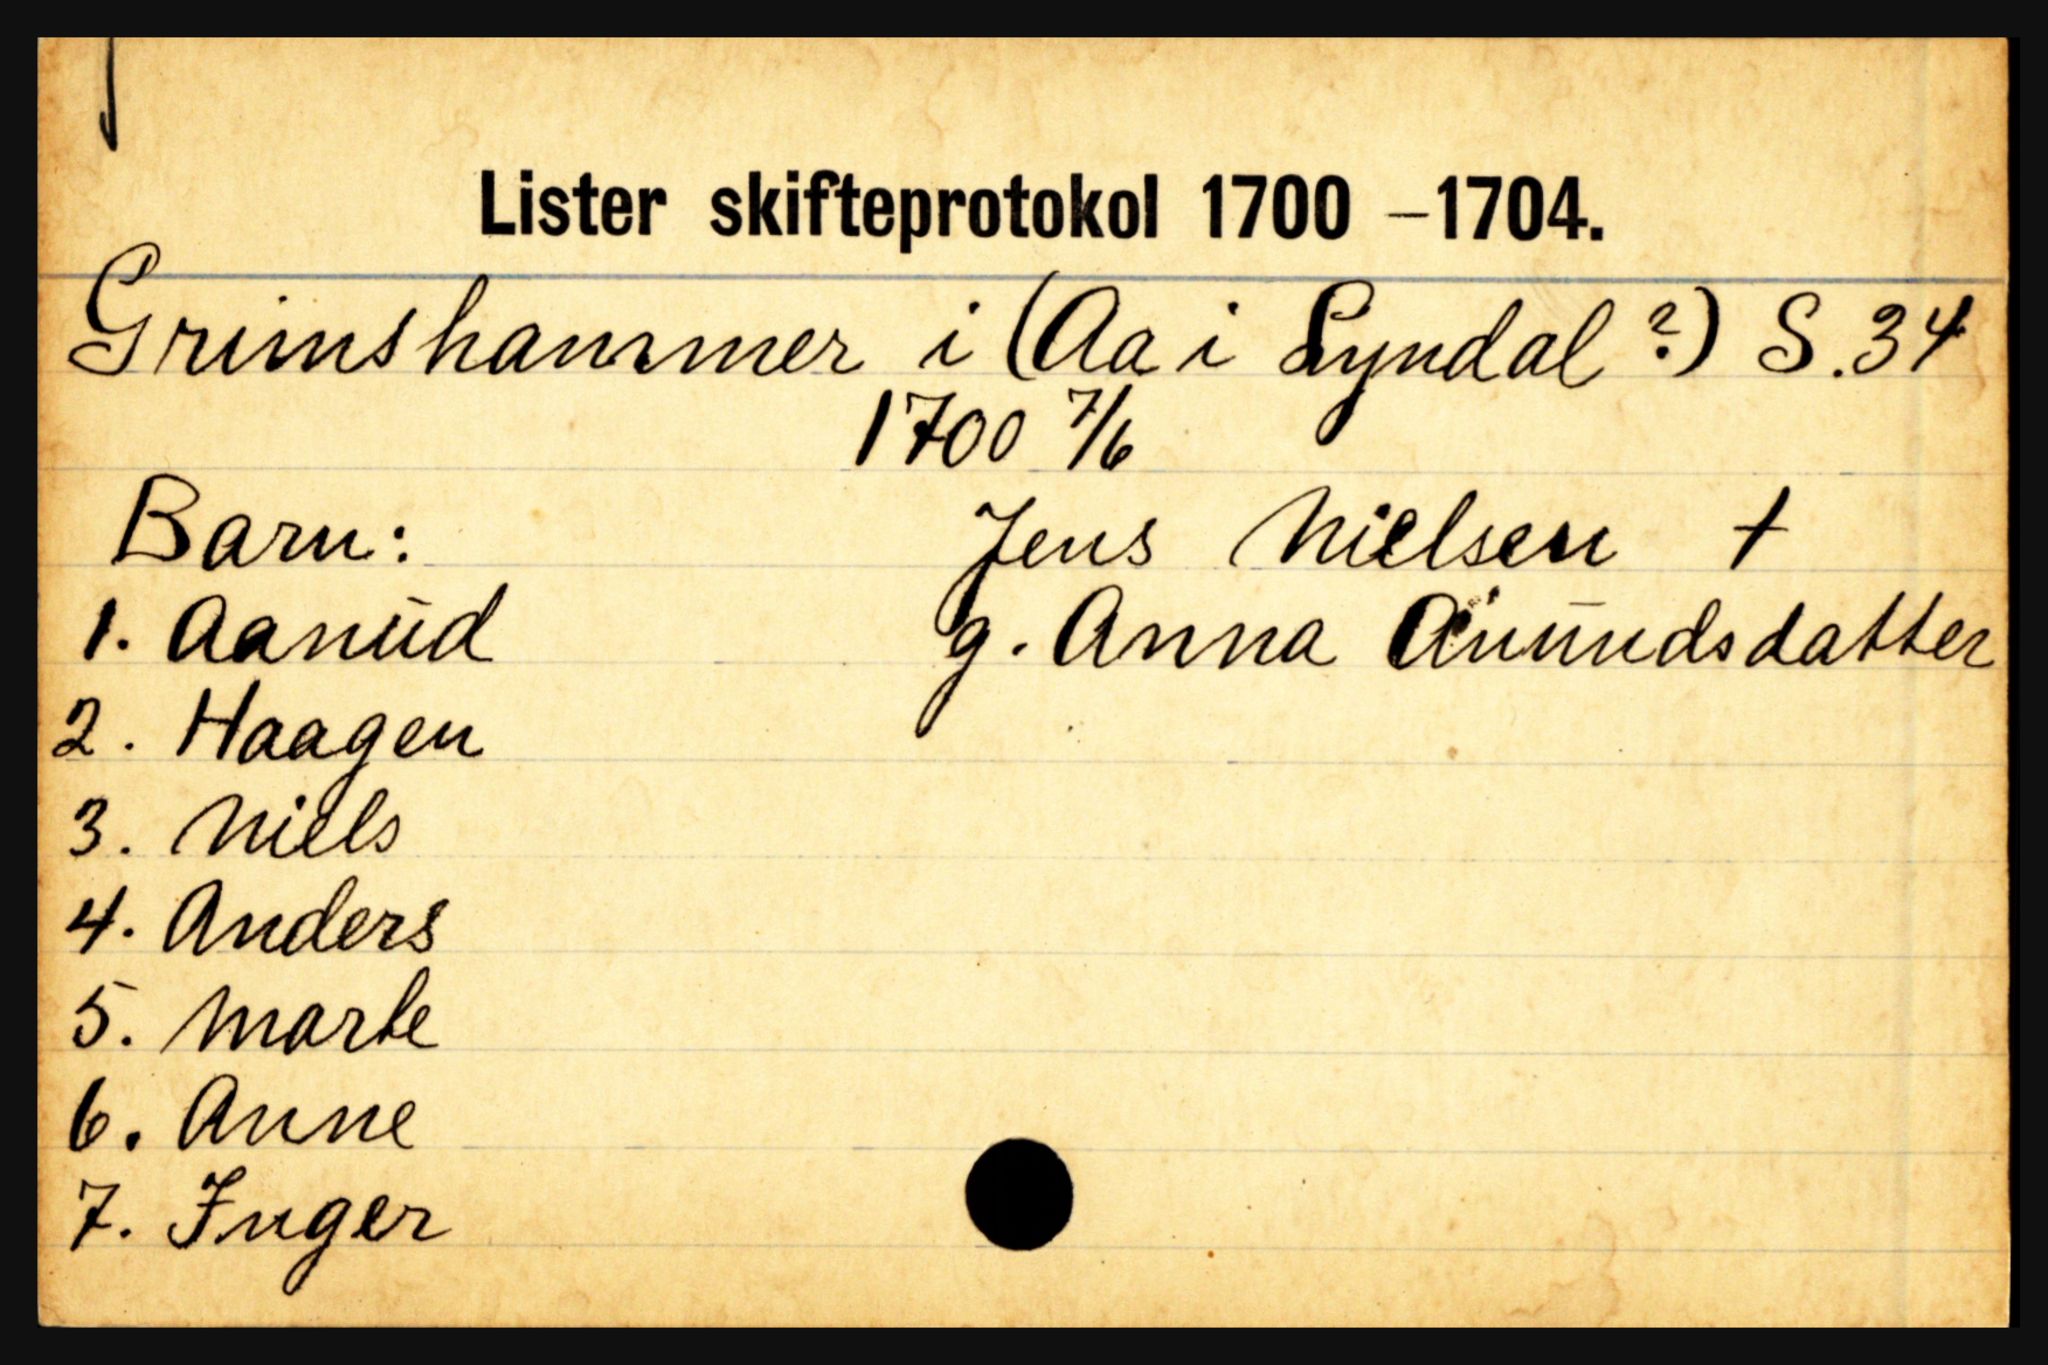 Lister skifteprotokol 1700 –1704.
Grimshammer i (Aa i Lyndal ?) S. 34
1700 7/6
Barn: Jens Nielsen †
1. Aanud g. Anna Anundsdatter
2. Haagen
3. Niels
4. Anders
5. Marte
6. Anne
7. Inger